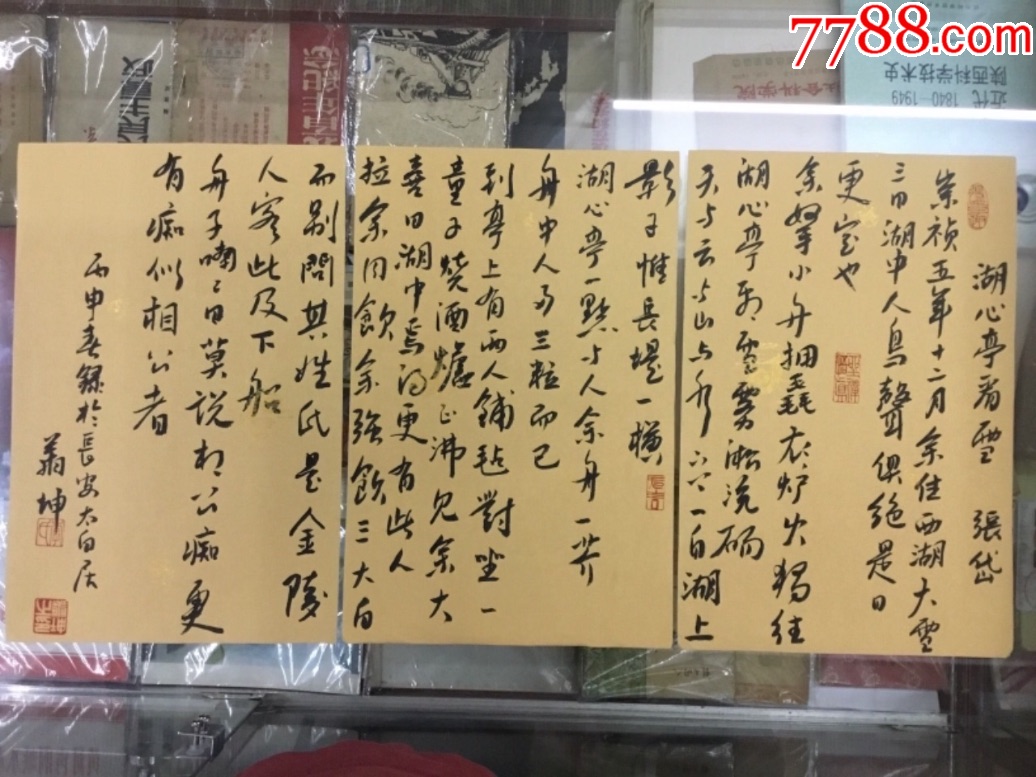 7788.com
湖心亭看雪 張岱
崇禎五年十二月余住西湖大雪
三日湖中人鳥聲俱絕是日
更定也
余拏小舟擁毳衣炉火獨往
湖心亭看雪霧淞沆碭
天与云与山与水上下一白湖上
影子惟長堤一橫
湖心亭一點与人余舟一芥
舟中人两三粒而已
到亭上有两人鋪毡對坐一
童子燒酒爐正沸見余大
喜曰湖中焉得更有此人
拉余同飲余強飲三大白
而別問其姓氏是金陵
人客此及下船
舟子喃〻曰莫說相公痴更
有痴似相公者
丙申春錄於長安太白居
坤
近代 1840-1949
陕西科学技术史
科学院